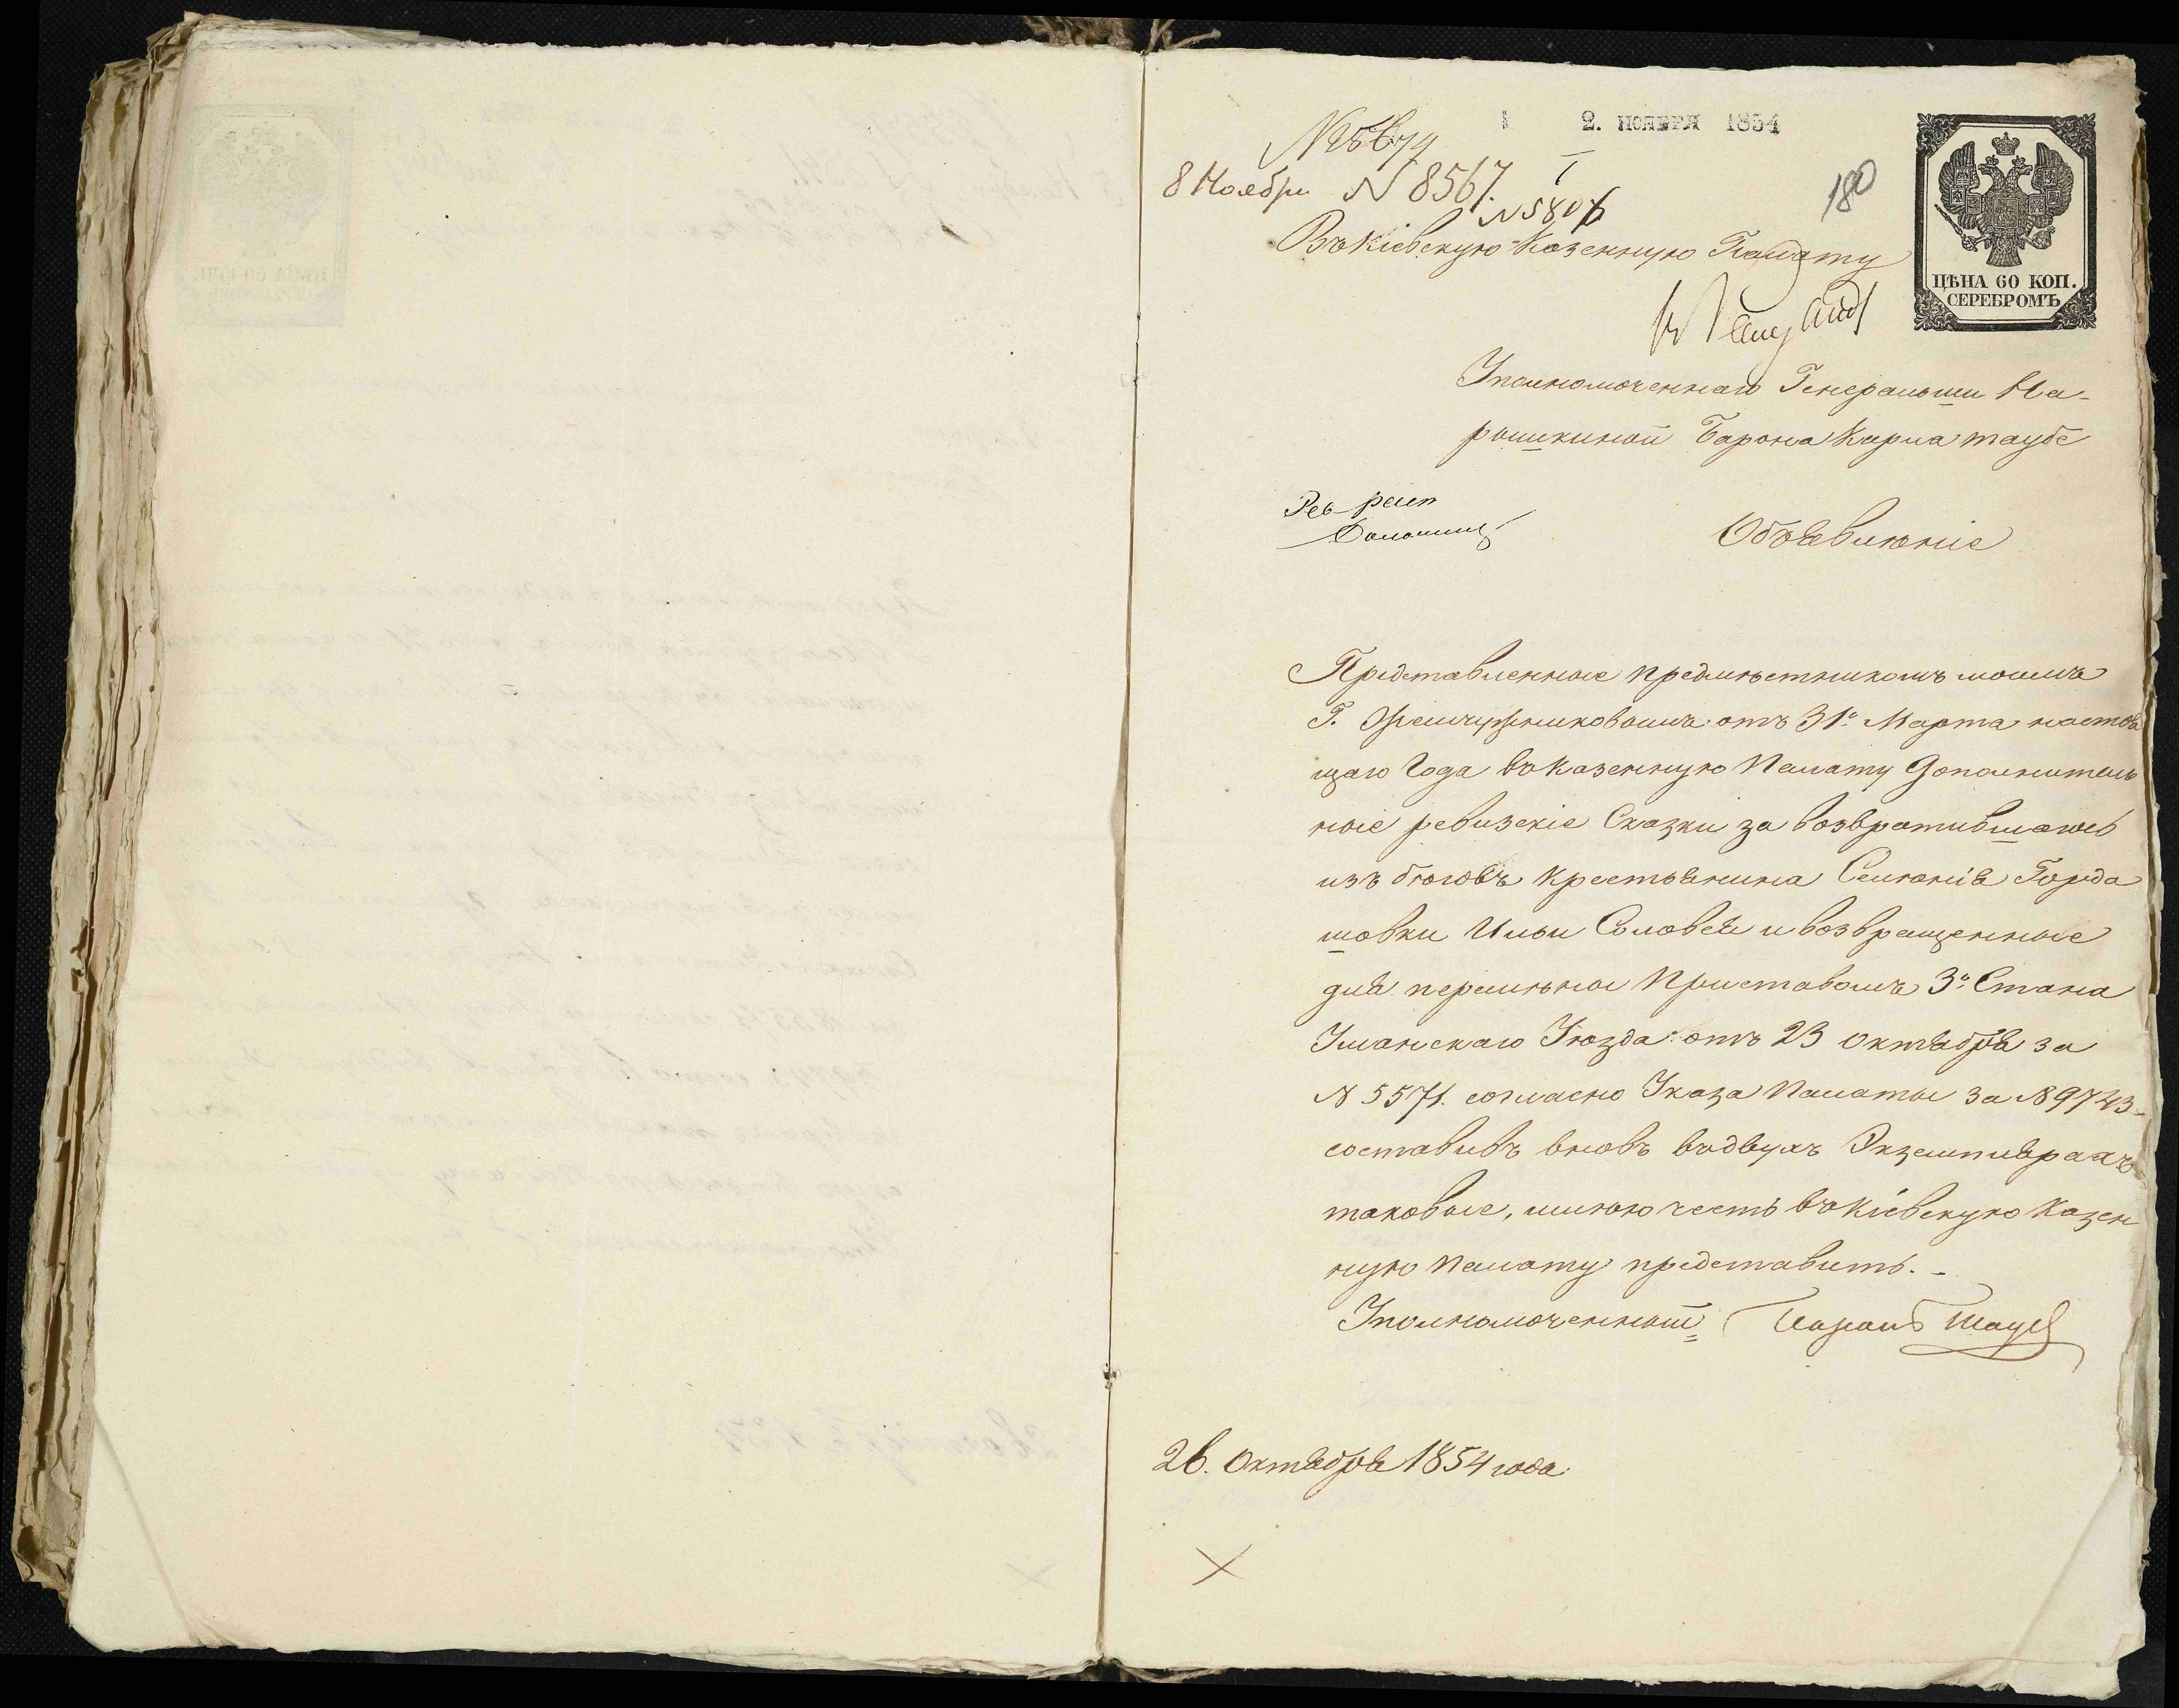 2. НОЯБРЯ 1854
8 Ноября N 8567.
N 580
180
Въ Кіевскую Казенную Палату
ЦѢНА 60 КОП.
СЕРЕБРОМЪ
Уполномоченнаго Генеральши На-
рышкиной Барона Карла таубе
Объявленіе
Представленные предмѣстникомъ моимъ
Г. Жемчужниковымъ отъ 31го Марта настоя
щаго Года въ Казенную Палату Дополнитель
ные ревизскіе Сказки за возвратившагось
изъ бѣговъ крестьянина Селенія Горда
шовки Ильи Соловея и возвращенные
для перемѣны Приставомъ 3го Стана
Уманскаго Уѣзда отъ 23 октября за
N 5571. согласно Указа Палаты за N 9743
составивъ вновь въ двухъ Экземплярахъ
таковые, имѣю честь въ Кіевскую Казен
ную Палату представить.-
Уполномоченный Баронъ Таубе
26. Октября 1854 года.